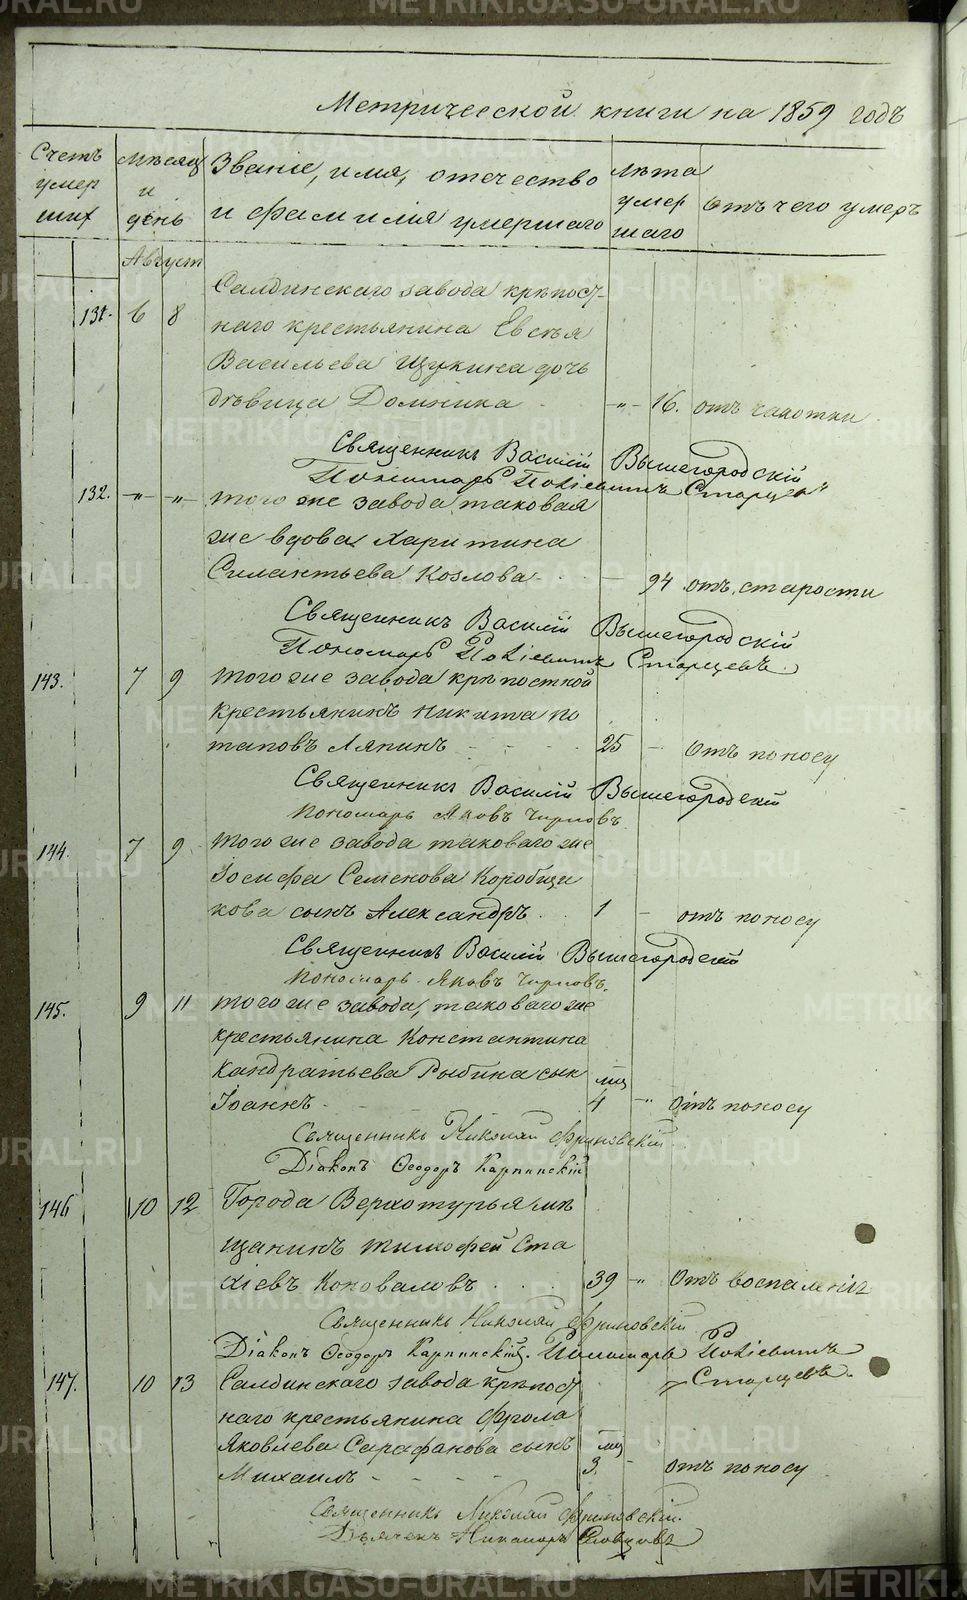 Метрической книги на 1859 годъ
Счетъ умерших
Мѣсяц и день
Званіе, имя, отечество и фамилія умершаго
лѣта умершаго
Отъ чего умеръ
Август
131. 6 8 Салдинскаго завода крѣпост-
наго крестьянина Евсѣя
Васильева Щукина дочь
дѣвица Домника - „ - 16. отъ чахотки
Священникъ Василій Вышегородскій
Пономарь Старцевъ
132. -„- -„- того же завода таковая
же вдова Харитина
Силантьева Козлова - - 94 отъ старости
Священникъ Василій Вышегородскій
Пономарь Старцевъ.
143. 7 9 того же завода крѣпостной
крестьянинъ Никита По
таповъ Ляпинъ - - - 25 - Отъ поносу
Священникъ Василій Вышегородскій
Пономарь Яковъ
144. 7 9 того же завода таковаго же
Іосифа Семенова Коробщи
кова сынъ Александръ. . 1 - отъ поносу
Священникъ Василій Вышегородскій
Пономарь Яковъ
145. 9 11 того же завода, таковаго же
крестьянина Константина
Кандратьева Рыбина сын мц
Іоаннъ - 4 - „ Отъ поносу
Священникъ Николай Фриновскій
Діаконъ Ѳеодоръ Карпинскій
146 10 12 Города Верхотурья мѣ
щанинъ Тимофей Ста
хіевъ Коноваловъ . . . 39 - „ Отъ воспаленія
Священникъ Николай Фриновскій
Діаконъ Ѳеодоръ Карпинскій. Пономарь
Старцевъ.
147. 10 13 Салдинскаго завода крѣпост
наго крестьянина Фрола
Яковлева Сарафанова сынъ мц
Михаилъ - - - - 3. - отъ поносу
Священникъ Николай Фриновскій.
Дьячекъ Никаноръ Словцовъ
METRIKI.GASO-URAL.RU